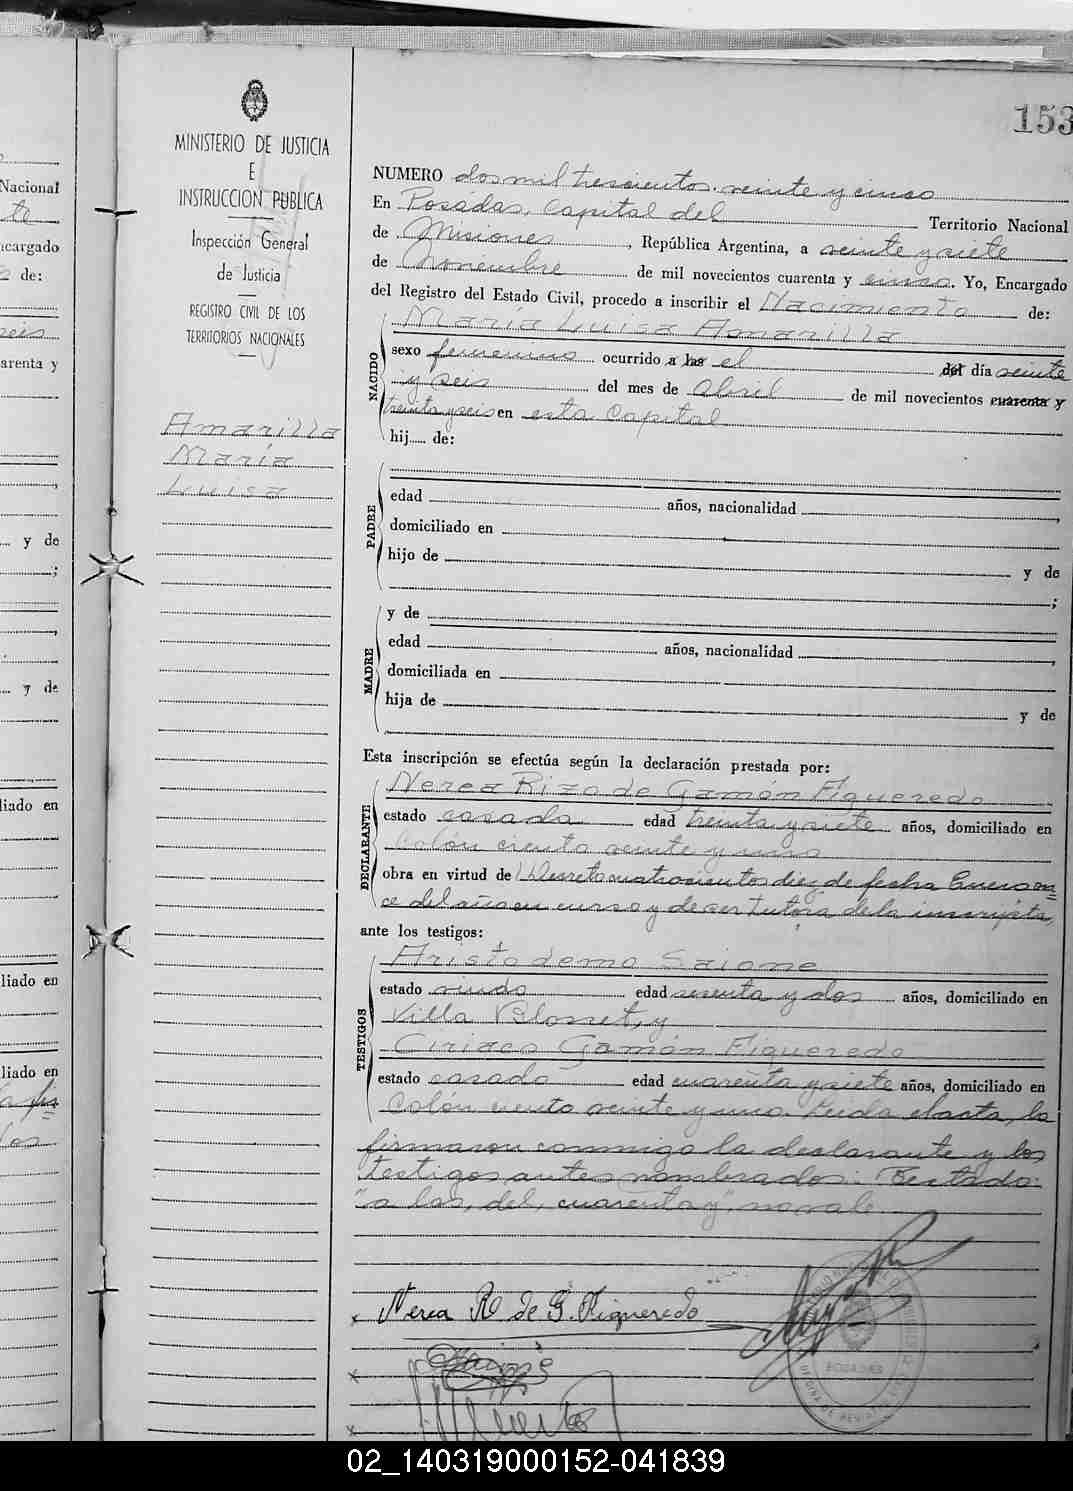 153
MINISTERIO DE JUSTICIA
E
INSTRUCCION PUBLICA
Inspección General
de Justicia
REGISTRO CIVIL DE LOS
TERRITORIOS NACIONALES
Amarilla
María
Luisa
NUMERO dos mil trescientos veinte y cinco
En Posadas, Capital del Territorio Nacional
de Misiones, República Argentina, a veinte y siete
de noviembre de mil novecientos cuarenta y cinco. Yo, Encargado
del Registro del Estado Civil, procedo a inscribir el Nacimiento de:
NACIDO
María Luisa Amarilla
sexo femenino ocurrido a las el del día veinte
y seis del mes de abril de mil novecientos cuarenta y
treinta y seis en esta Capital
hij de:
PADRE
edad años, nacionalidad ,
domiciliado en
hijo de y de
;
MADRE
y de
edad años, nacionalidad ,
domiciliada en
hija de y de
Esta inscripción se efectúa según la declaración prestada por:
DECLARANTE
Nerea Rizo de Gamón Figueredo
estado casada edad treinta y siete años, domiciliado en
Colón ciento veinte y uno
obra en virtud de Decreto cuatrocientos diez de fecha Enero on=
ce del año en curso y de ser tutora de la inscripta,
ante los testigos:
TESTIGOS
Aristodemo
estado viudo edad sesenta y dos años, domiciliado en
Villa Blosset, y
Ciriaco Gamón Figueredo
estado casado edad cuarenta y siete años, domiciliado en
Colón ciento veinte y uno. Leida el acta, la
firmaron conmigo la declarante y los
testigos antes nombrados. Testado:
"a las, del, cuarenta y", no vale
x Nerea R de G. Figueredo
x
x
POSADAS
Nacional
te
ncargado
de:
arenta y
,
y de
;
,
y de
liado en
liado en
liado en
02_140319000152-041839